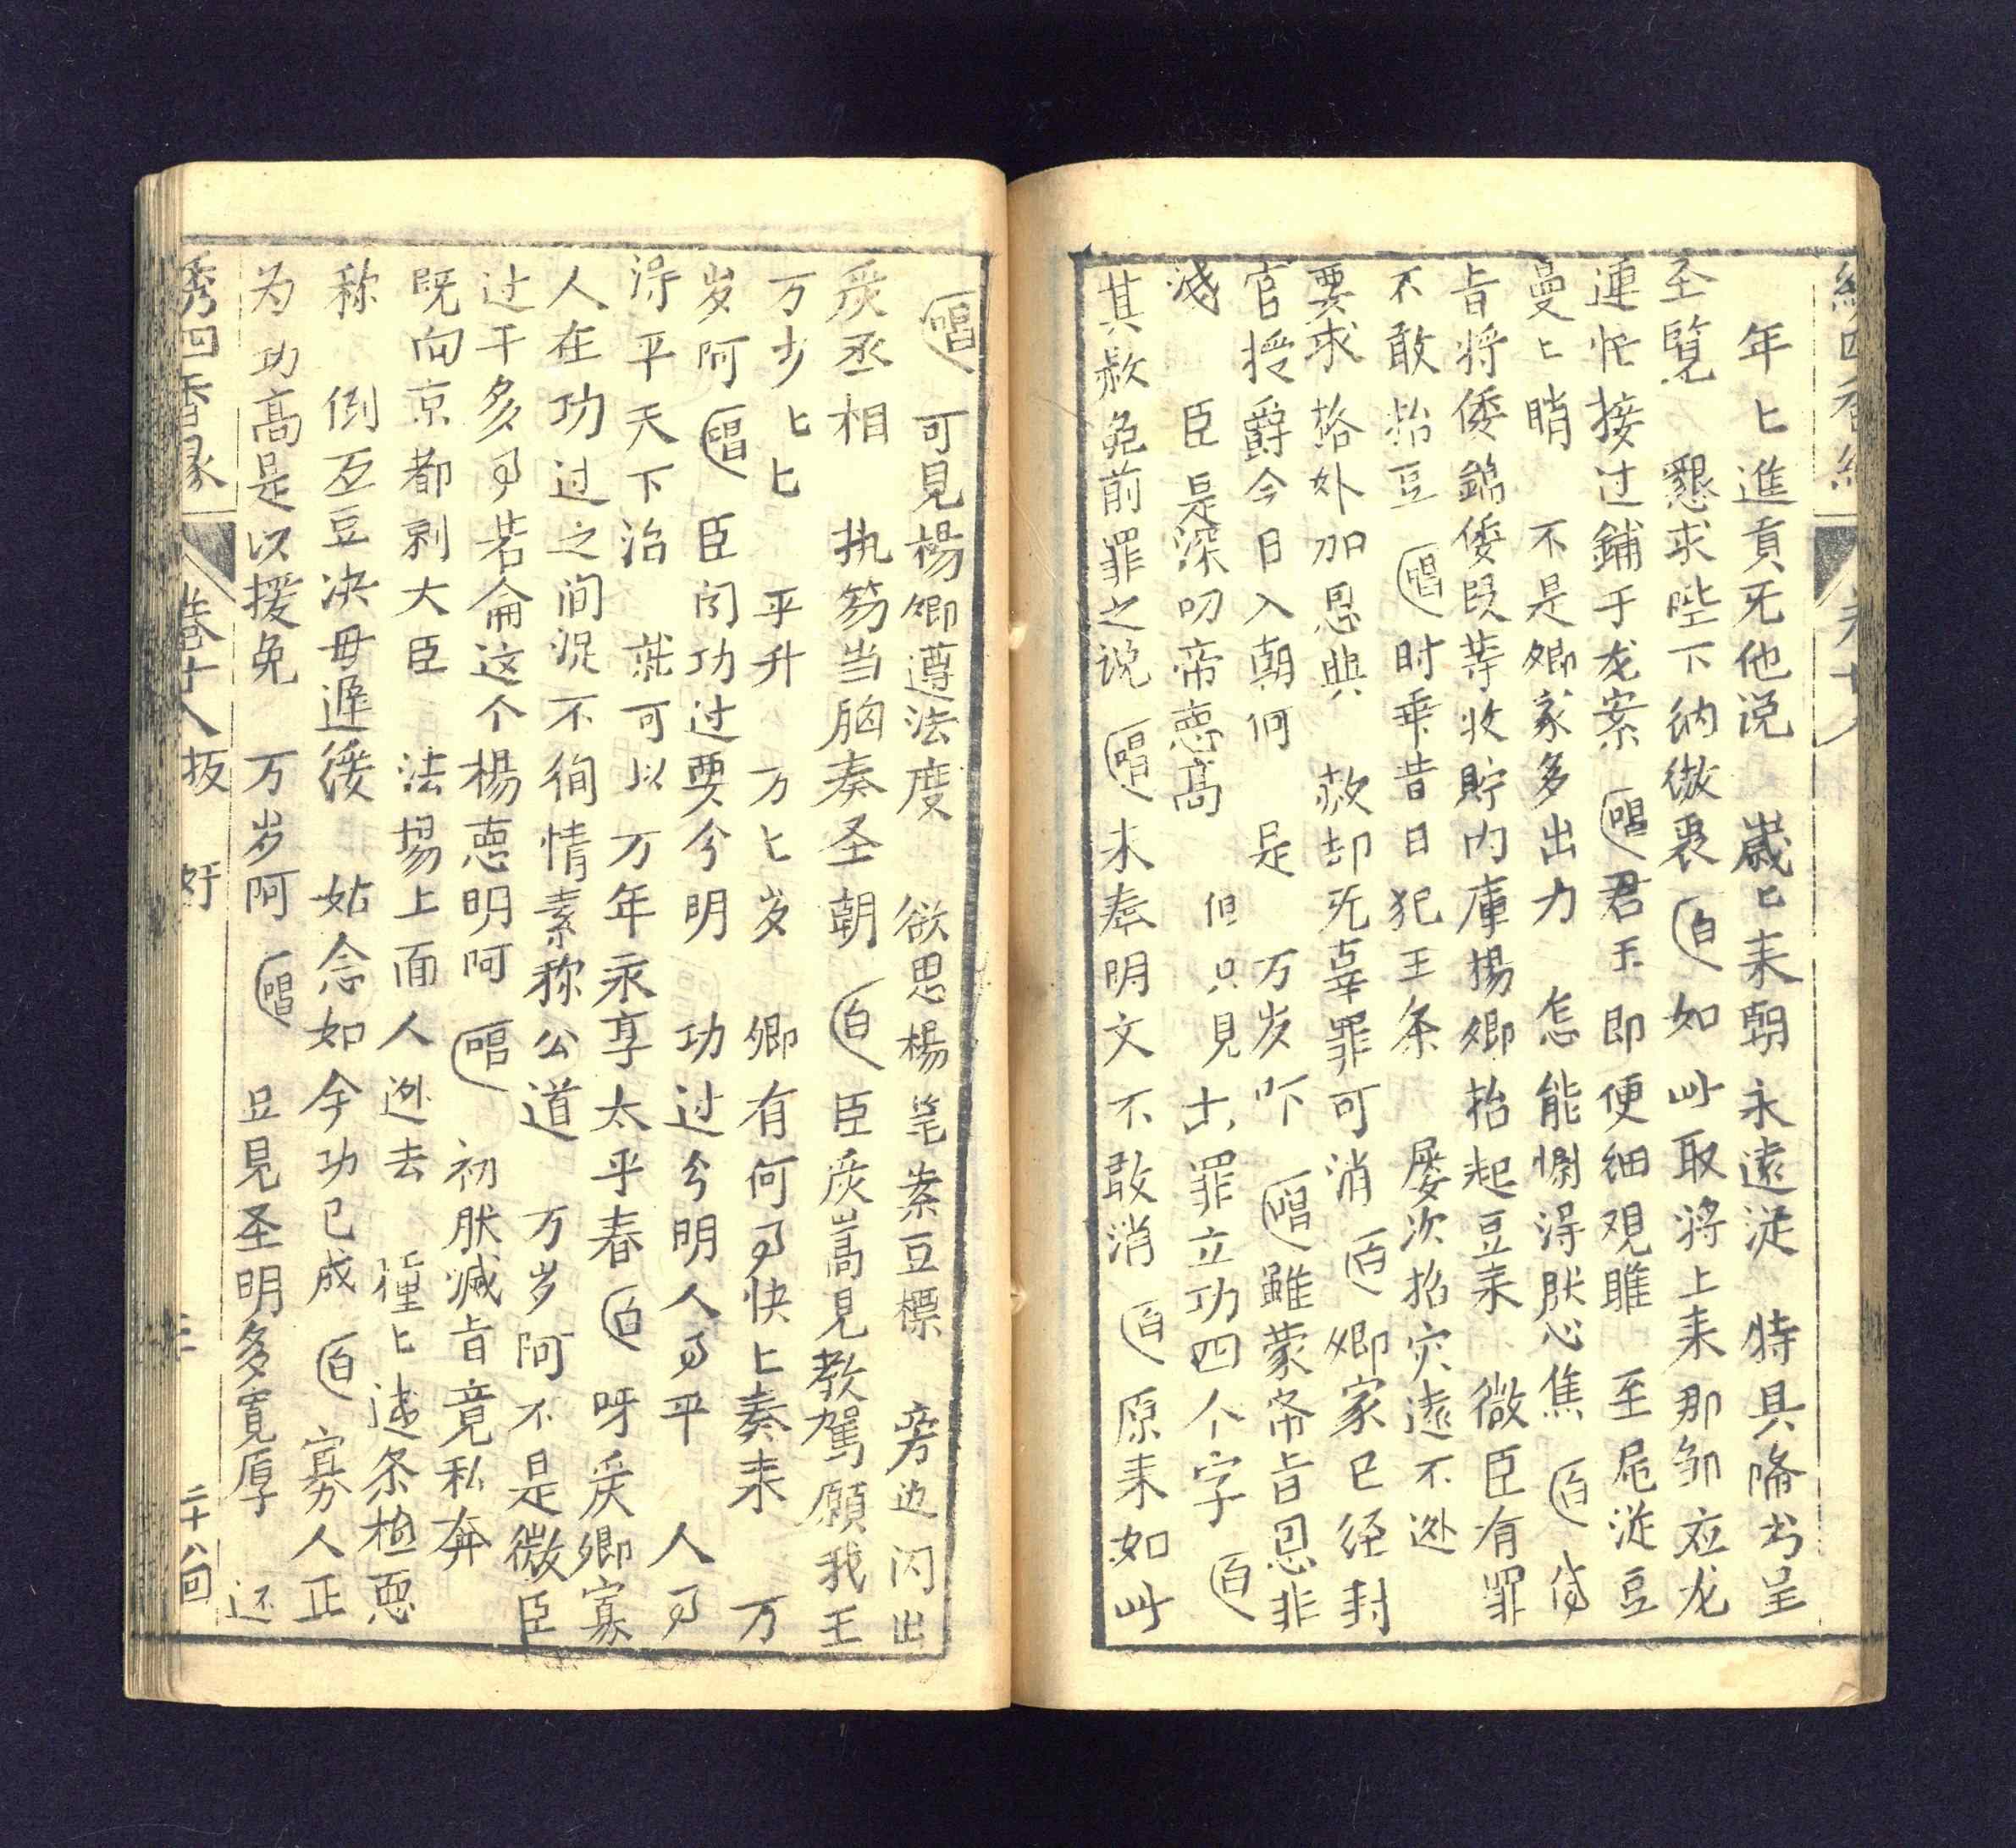 年匕進貢死他说 歲匕来朝永遠從 特具俻书呈
至覽 懇求陛下納微衷 白 如此取將上来那邹应龙
連忙接过鋪于龙案 唱 君王即便細观睢 至尾從豆
曼匕睄 不是卿家多出力 怎能惻得朕心焦 白
旨将倭鋳倭叚等收貯内庫楊卿抬起豆来 微臣有罪
不敢抬豆 唱 时乖昔日犯王条 屡次招灾遠不逊
要求格外加恩典 赦却死辜罪可消 白 卿家已经封
官授爵今日入朝何 是 万岁吓 唱 雖蒙帝旨恩非
淺 臣是深叨帝悳高 但只見 罪立功四个字 白
其赦免前罪之说 唱 未奉明文不敢消 白 原来如此
唱 可見楊卿遵法度 欲思楊笔豆標 旁边闪出
丞相 执笏当胸奏圣朝 白 臣嵩見教駕願我王
万岁匕匕 平升 万匕岁 卿有何快匕奏来 万
岁阿 唱 臣闻功过要分明 功过分明人平 人
得平天下治 就可以万年永享太平春 白 呀卿寡
人在功过之间况不徇情素称公道 万岁阿不是微臣
过于多若侖这个楊悳明阿 唱 初朕滅旨竟私奔
既向京都剥大臣 法場上面人逊去 種匕違条植悳
称 倒歪豆决毋遲緩 姑念如今功已成 白 寡人正
为功高是以援免 万岁阿 唱 且見圣明多寛厚 还
绣四香缘 卷十八 扳 奸 二十八回